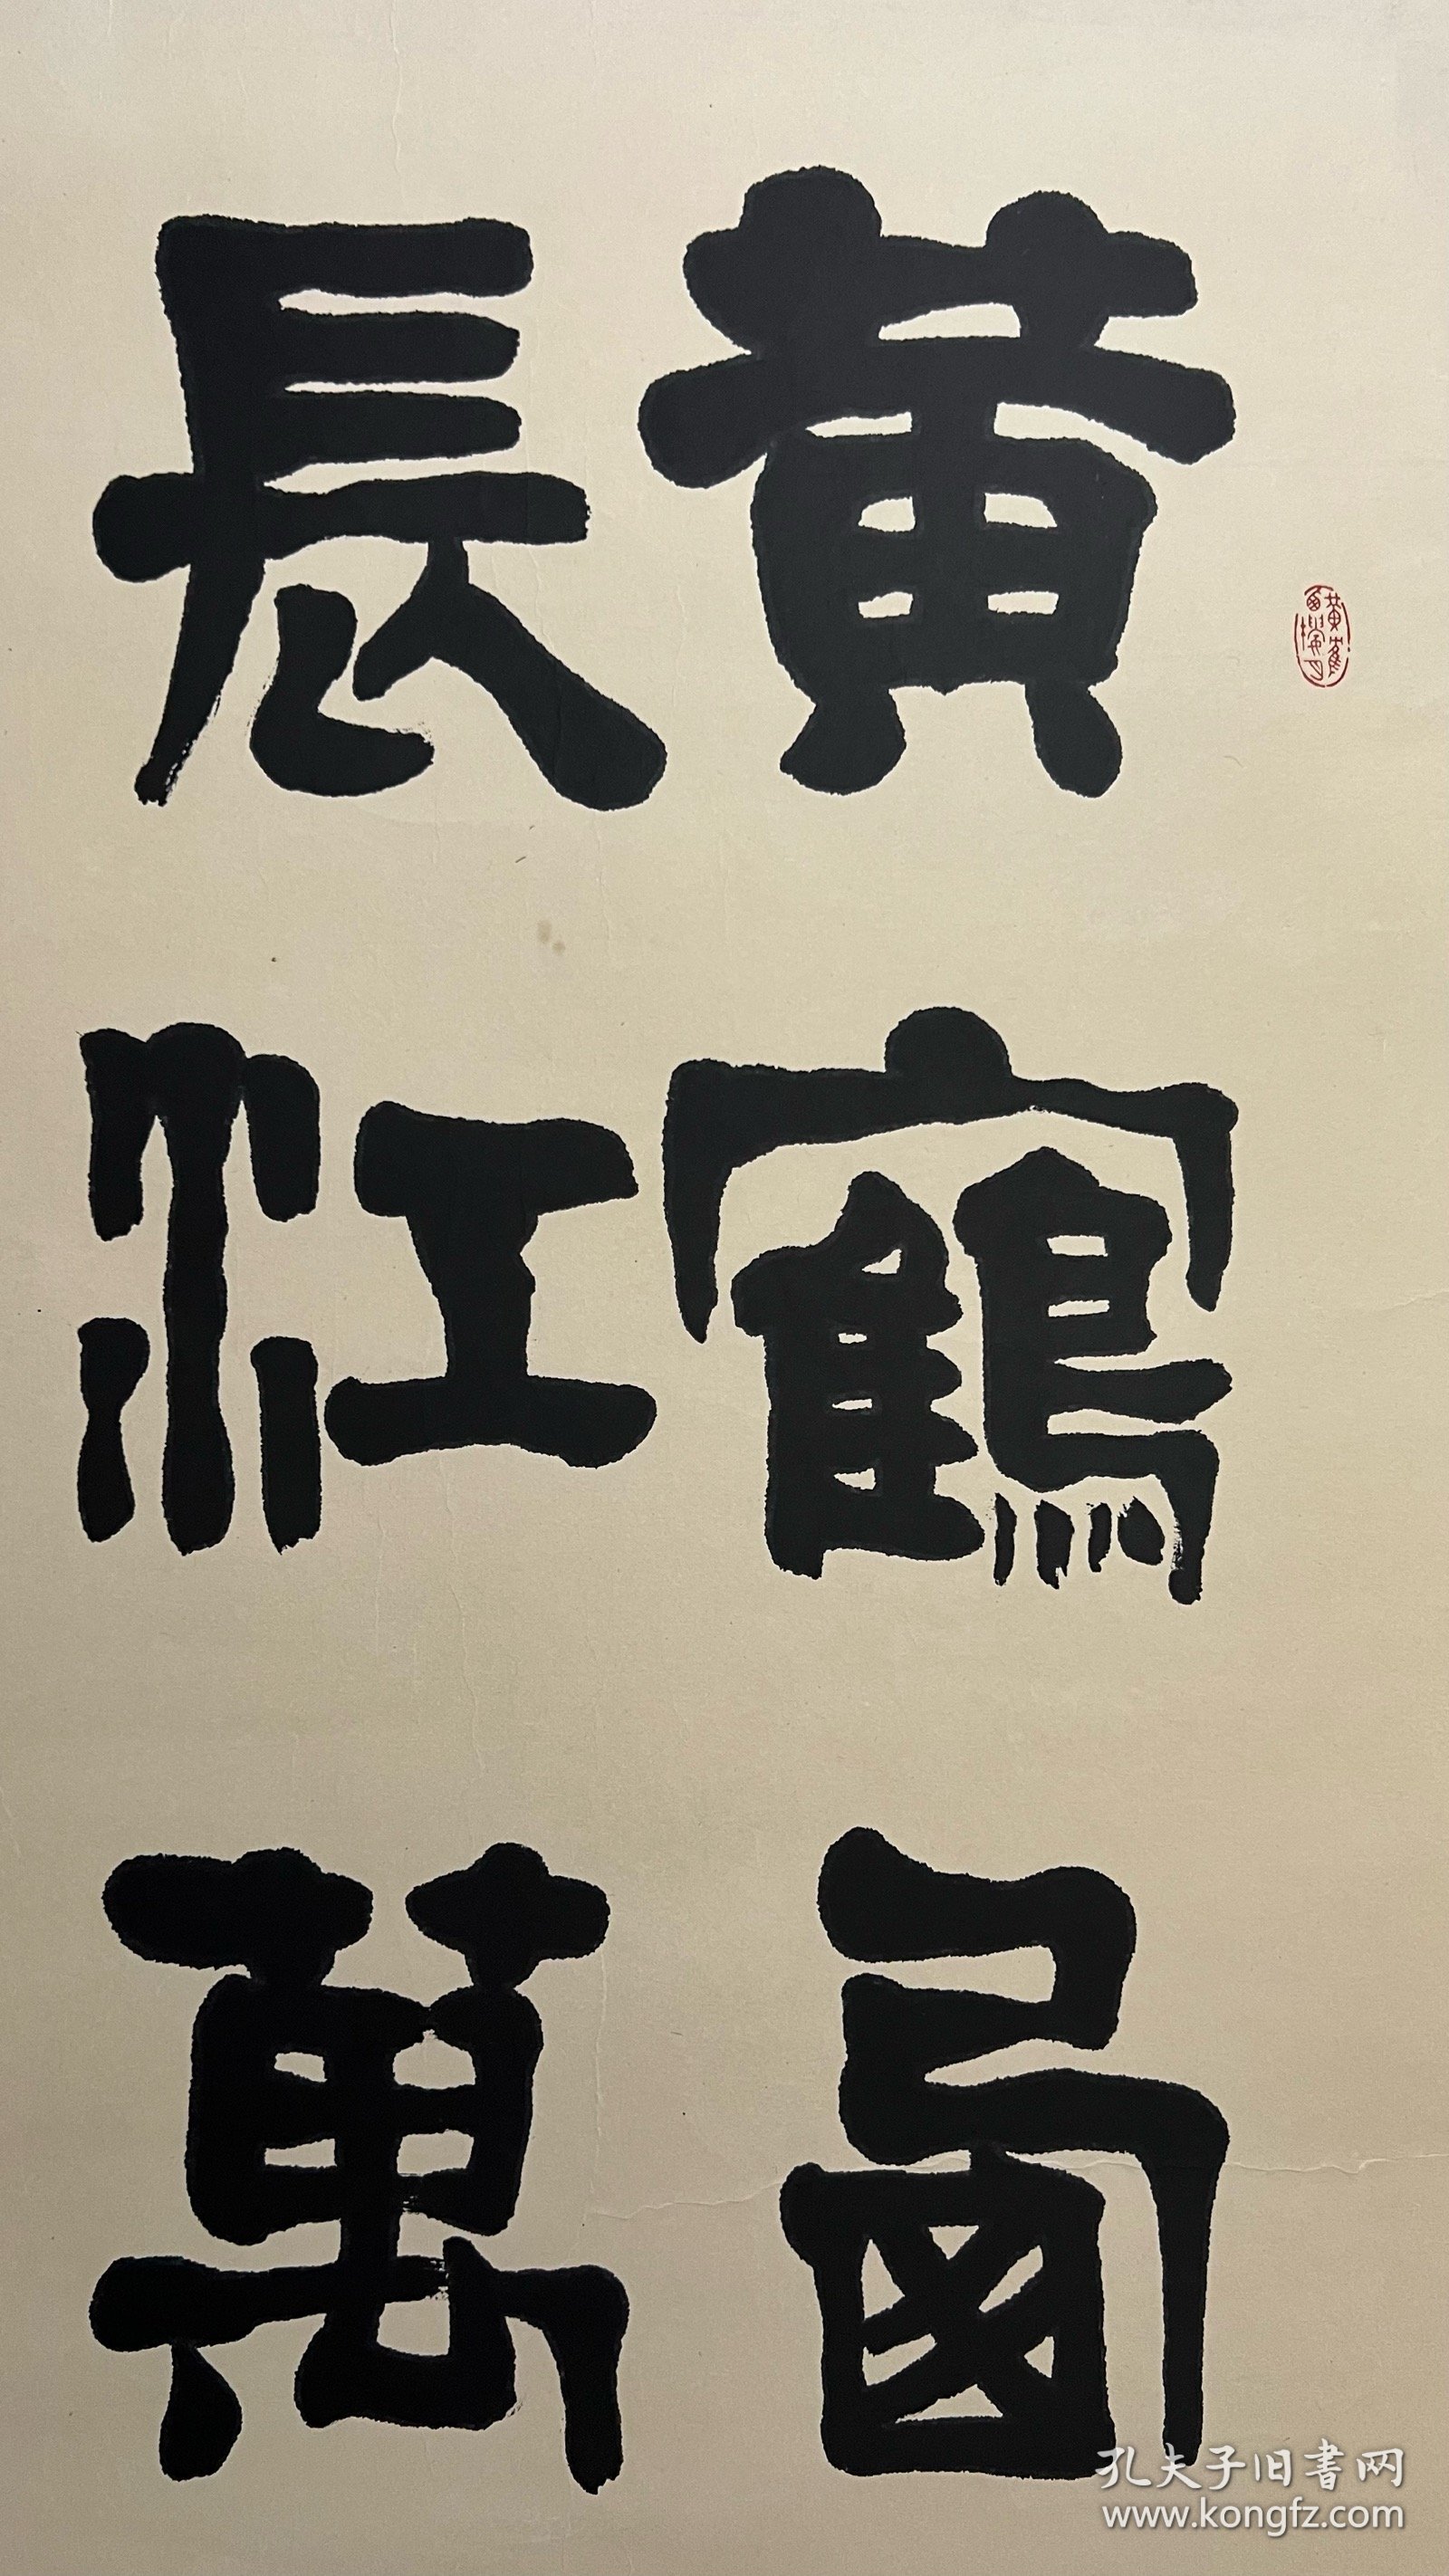 黃鶴
長江萬
孔夫子旧書网
www.kongfz.com